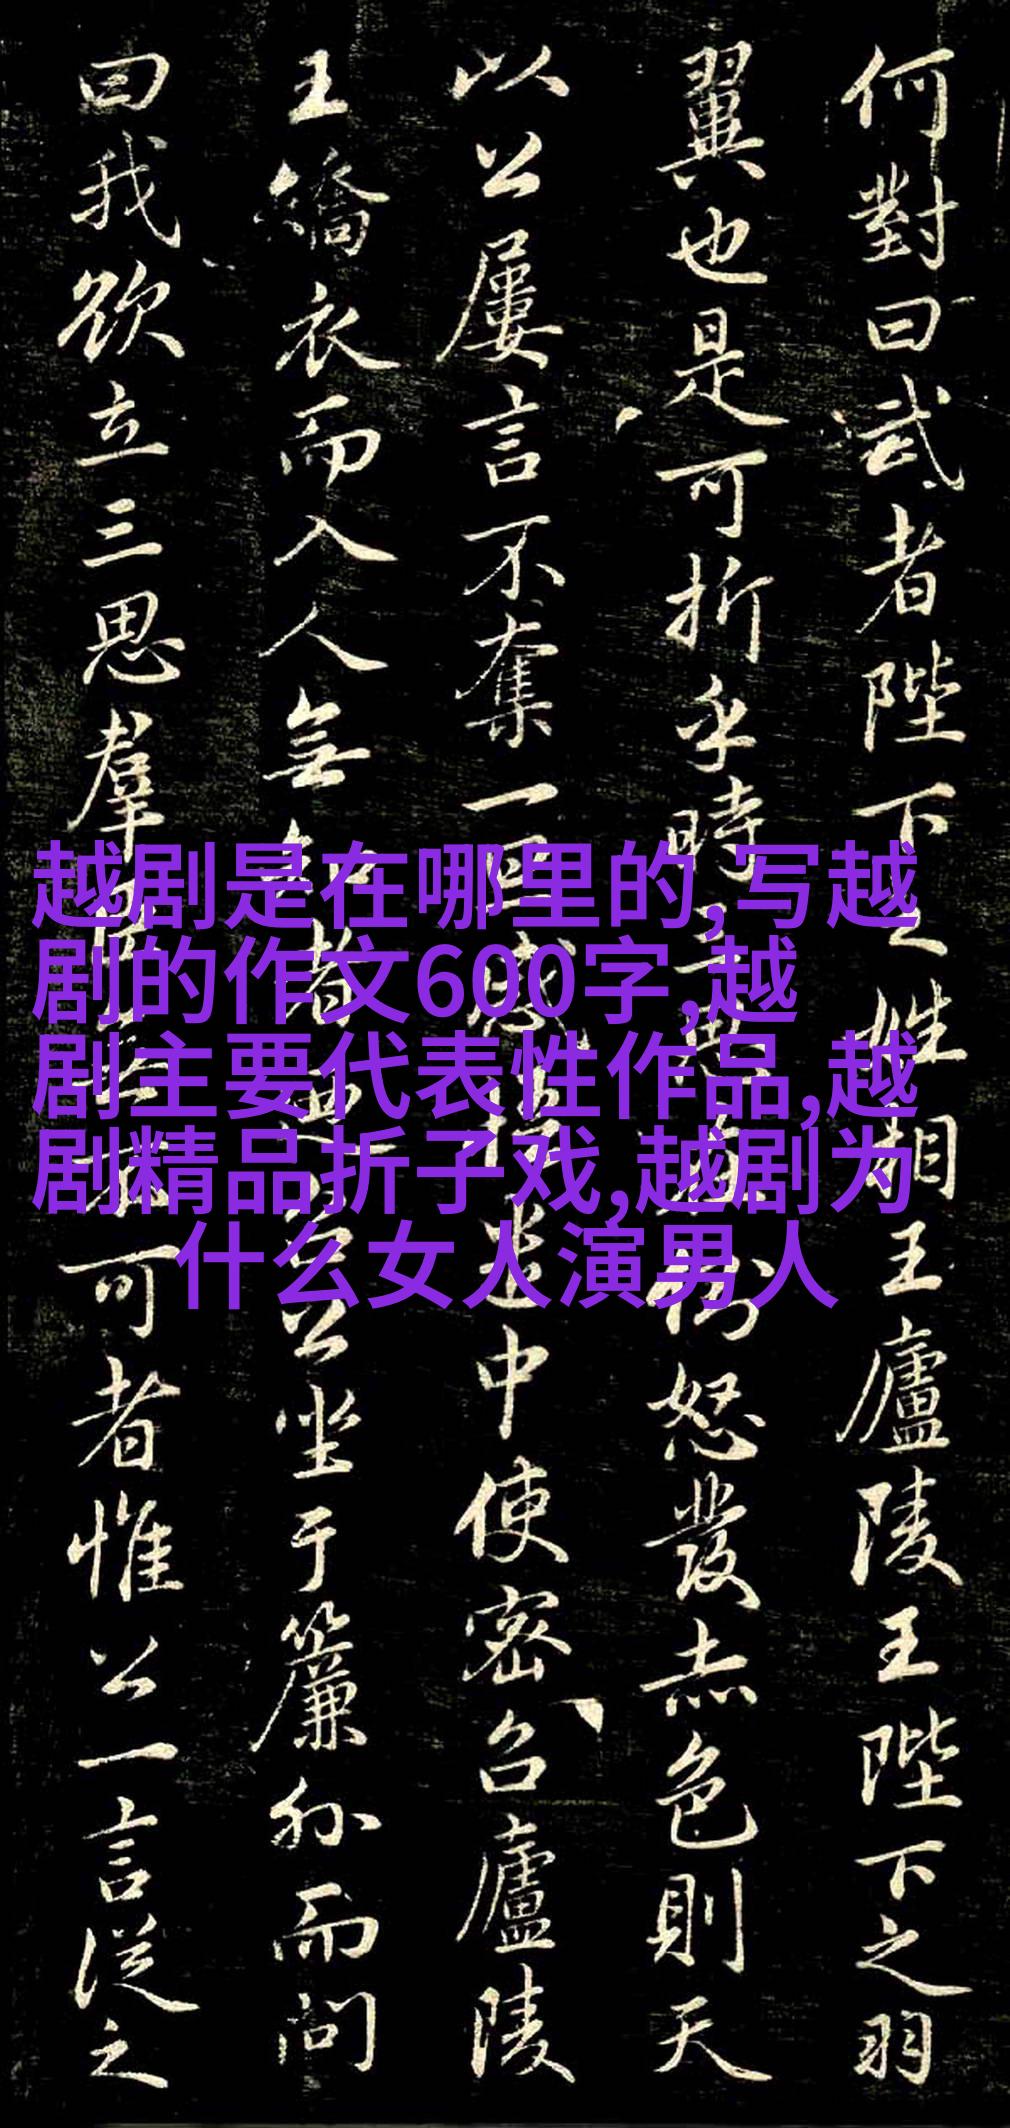 何對曰武者陛下之姓相王廬陵王陛下之羽
翼也是可折乎時三思在側怒發赤色則天
以公屢言不奪一旦感悟遣中使密召廬陵
王繑衣而入人無知者召公坐于簾外而問
曰我欲立三思羣臣無不可者惟公一言從之
越剧是在哪里的,写越
剧的作文600字,越
剧主要代表性作品,越
剧精品折子戏,越剧为
什么女人演男人